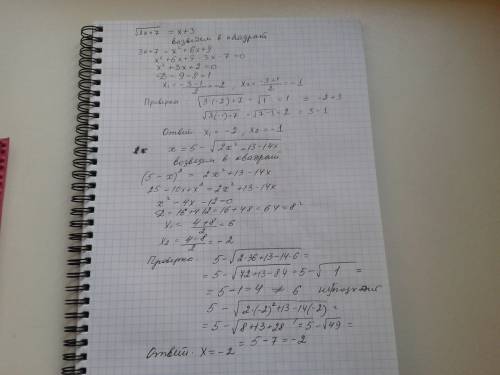 √3x+7 = x+3
возведем в квадрат
3x+7 = x²+6x+9
x²+6x+9-3x-7=0
x²+3x+2=0
D=9-8=1
x₁= (-3-1)/2 = -2 x₂= (-3+1)/2 = -1
Проверка √3·(-2)+7 = √1 = 1 = -2+3
√3(-1)+7 = √7-3=2 = 3-1
Ответ x₁=-2, x₂=-1
x = 5-√2x²+13-14x
возведем в квадрат
(5-x)² = 2x²+13-14x
25-10x+x² = 2x²+13-14x
x²-4x-12=0
D=16+4·12=16+48=64=8²
x₁= (4+8)/2 = 6
x₂= (4-8)/2 = -2
Проверка 5-√2·36+13-14·6 =
= 5-√72+13-84 = 5-√1 =
= 5-1=4 ≠ 6 не подходит
5-√2·(-2)²+13-14(-2) =
= 5-√8+13+28 = 5-√49 =
= 5-7=-2
Ответ. x=-2